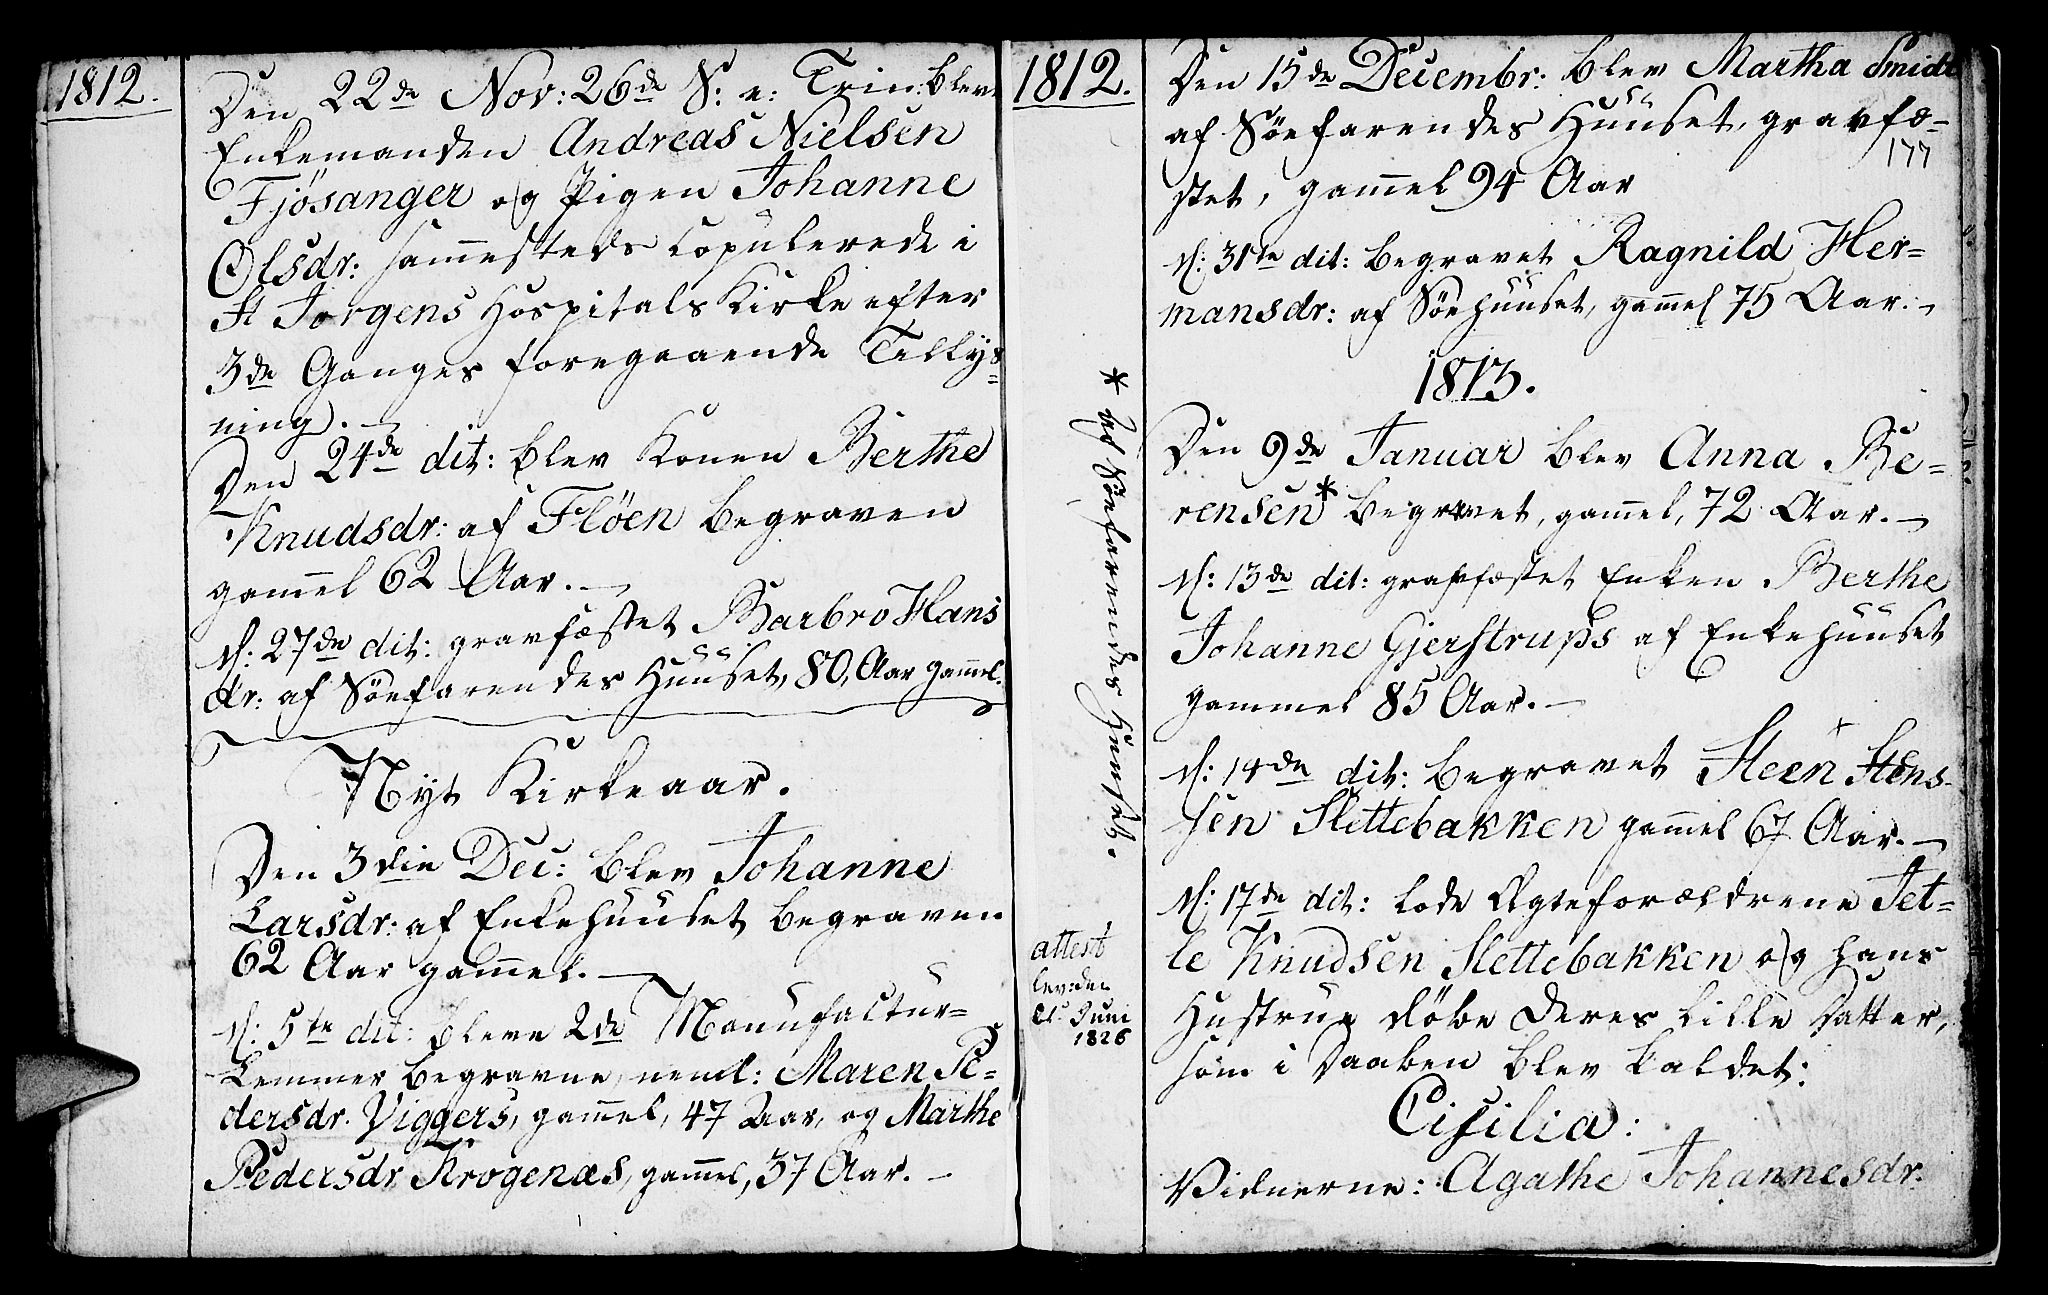 1812.
Den 22de Nov: 26de S: e: Trin: bleve
Enkemanden Andreas Nielsen
Fjösanger og Pigen Johanne
Olsdr: sam̄esteds Copulerede i
St Jørgens Hospitals Kirke efter
3de Ganges foregaaende Tillys=
ning. -
Den 24de dit: blev Konen Berthe
Knudsdr: af Fløen begraven
gam̄el 62 Aar. -
d: 27de dit: gravfæstet Barbro Hans
dr: af Söefarendes Huuset, 80, Aar gam̄el.
Nyt Kirkeaar.
Den 3die Dec: blev Johanne
Larsdr: af Enkehuuset begraven
62 Aar gam̄el. -
d: 5te dit: bleve 2de Manufactur=
Lemmer begravne, neml: Maren Pe=
dersdr. Viggers, gam̄el, 47 Aar, og Marthe
Pedersdr Krogenæs, gam̄el, 37 Aar. -
1812.
* af Söefarendes Huuset.
attest
lev: den
21 Juni
1826
Den 15de Decembr: blev Martha Smidt
af Söefarendes Huuset, gravfæ=
177
stet, gam̄el 94 Aar
d: 31te dit: begravet Ragnild Her=
mansdr: af Söehuuset, gam̄el 75 Aar. -
1813.
Den 9de Januar blev Anna Be=
rensen* begravet, gam̄el, 72 Aar. -
d: 13de dit: gravfæstet Enken Berthe
Johanne Gjerstrups af Enkehuuset
gammel 85 Aar. -
d: 14de dit: begravet Steen Stens
sen Slettebakken gam̄el 67 Aar. -
d: 17de dit: lode Ægteforældrene Tet=
le Knudsen Slettebakken og hans
Hustrue döbe deres lille Datter,
som i Daaben blev kaldet:
Cisilia:
Vidnerne: Agathe Johannesdr.